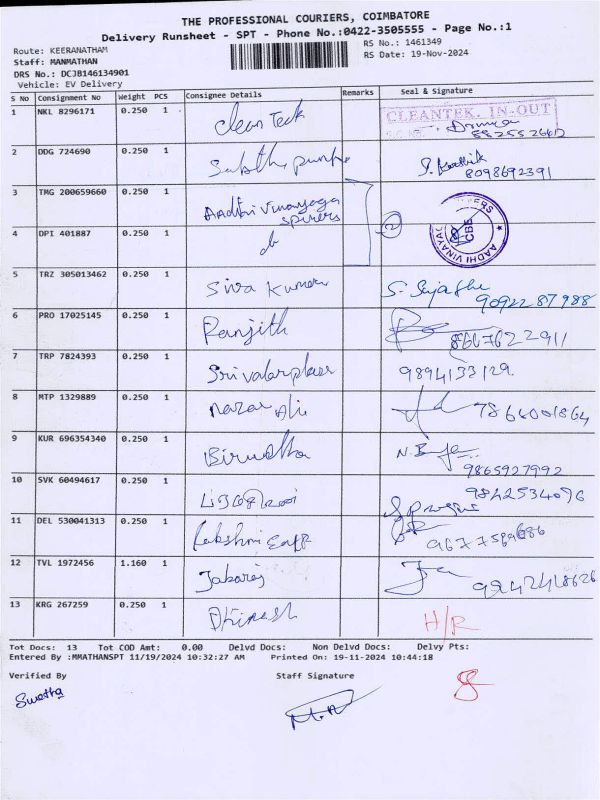 THE PROFESSIONAL COURIERS, COIMBATORE
Delivery Runsheet - SPT - Phone No.:0422-3505555 - Page No.:1
Route: KEERANATHAM
RS No.: 1461349
Staff: MANMATHAN
RS Date: 19-Nov-2024
DRS No.: DCJB146134901
Vehicle: EV Delivery
S No Consignment No Weight PCS Consignee Details Remarks Seal & Signature
1 NKL 8296171 0.250 1 Clean Teck CLEANTEK. IN-OUT
2 DDG 724690 0.250 1 8098692391
3 TMG 200659660 0.250 1 Aadhi Vinayaga
4 DPI 401887 0.250 1 2 AADHI VINAYAG CBE
5 TRZ 305013462 0.250 1 Siva Kumar 9092287988
6 PRO 17025145 0.250 1 Ranjith 8667622911
7 TRP 7824393 0.250 1 9894133129
8 MTP 1329889 0.250 1 Nazar Ali
9 KUR 696354340 0.250 1 Birundha 9865927992
10 SVK 60494617 0.250 1 9842534096
11 DEL 530041313 0.250 1 Lakshmi
12 TVL 1972456 1.160 1 Jabaraj
13 KRG 267259 0.250 1 Dhinesh H/R
Tot Docs: 13 Tot COD Amt: 0.00 Delvd Docs: Non Delvd Docs: Delvy Pts:
Entered By :MMATHANSPT 11/19/2024 10:32:27 AM Printed On: 19-11-2024 10:44:18
Verified By Staff Signature
Swetha